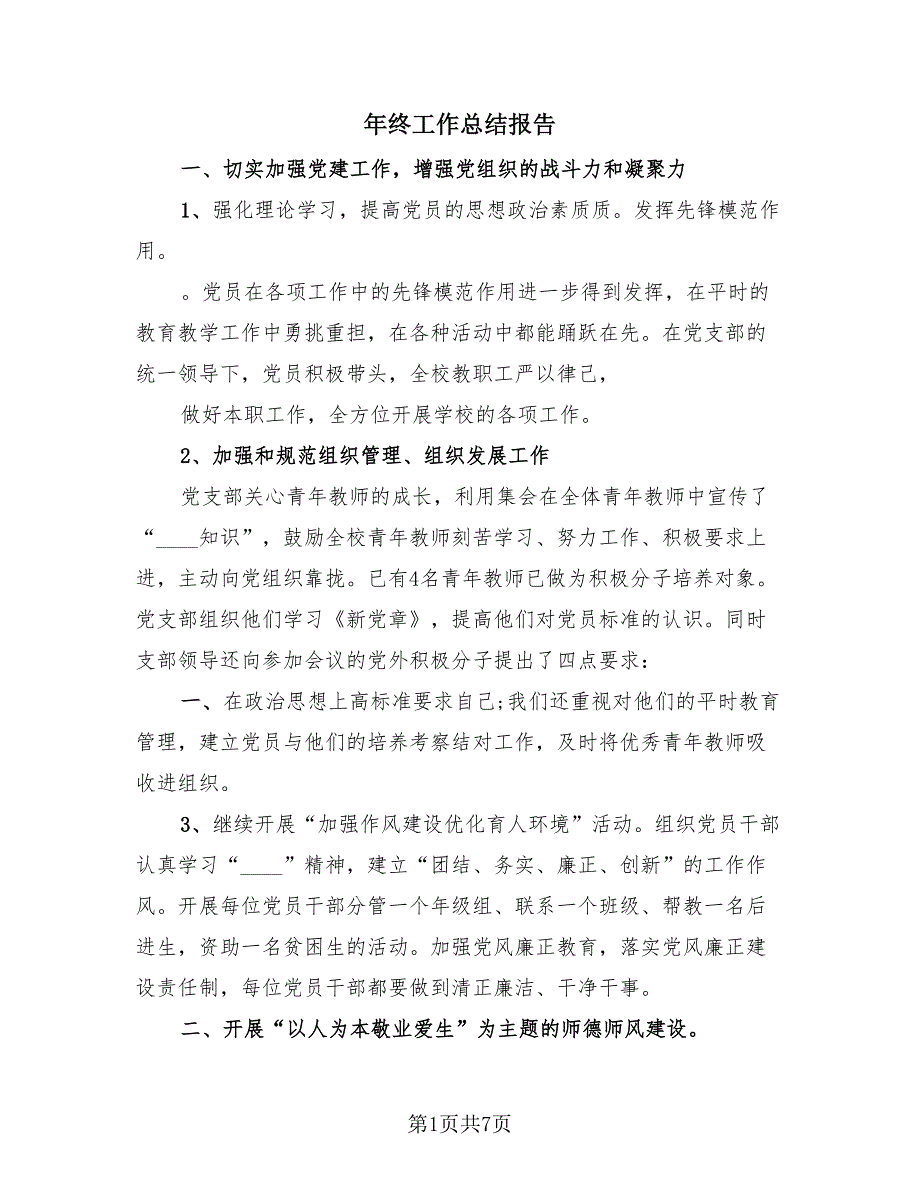 年终工作总结报告
一、切实加强党建工作，增强党组织的战斗力和凝聚力
1、强化理论学习，提高党员的思想政治素质质。发挥先锋模范作
用。
。党员在各项工作中的先锋模范作用进一步得到发挥，在平时的
教育教学工作中勇挑重担，在各种活动中都能踊跃在先。在党支部的
统一领导下，党员积极带头，全校教职工严以律己，
做好本职工作，全方位开展学校的各项工作。
2、加强和规范组织管理、组织发展工作
党支部关心青年教师的成长，利用集会在全体青年教师中宣传了
“____知识”，鼓励全校青年教师刻苦学习、努力工作、积极要求上
进，主动向党组织靠拢。已有4名青年教师已做为积极分子培养对象。
党支部组织他们学习《新党章》，提高他们对党员标准的认识。同时
支部领导还向参加会议的党外积极分子提出了四点要求：
一、在政治思想上高标准要求自己;我们还重视对他们的平时教育
管理，建立党员与他们的培养考察结对工作，及时将优秀青年教师吸
收进组织。
3、继续开展“加强作风建设优化育人环境”活动。组织党员干部
认真学习“____”精神，建立“团结、务实、廉正、创新”的工作作
风。开展每位党员干部分管一个年级组、联系一个班级、帮教一名后
进生，资助一名贫困生的活动。加强党风廉正教育，落实党风廉正建
设责任制，每位党员干部都要做到清正廉洁、干净干事。
二、开展“以人为本敬业爱生”为主题的师德师风建设。
第1页共7页